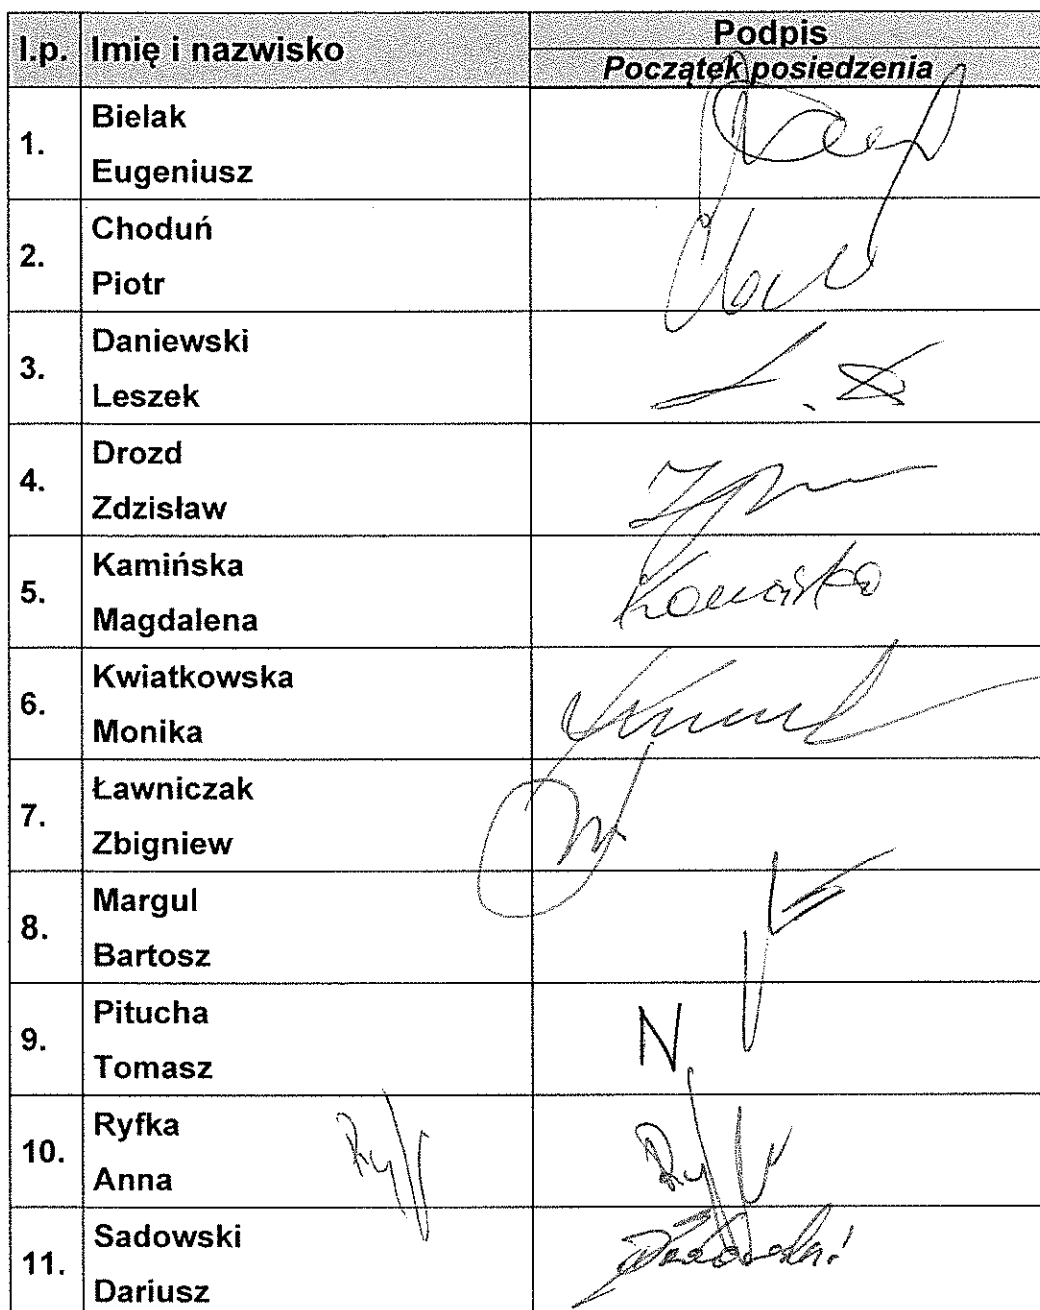 l.p. Imię i nazwisko Podpis
Początek posiedzenia
1. Bielak
Eugeniusz
2. Choduń
Piotr
3. Daniewski
Leszek
4. Drozd
Zdzisław
5. Kamińska
Magdalena
6. Kwiatkowska
Monika
7. Ławniczak
Zbigniew
8. Margul
Bartosz
9. Pitucha
Tomasz
N
10. Ryfka
Anna
11. Sadowski
Dariusz